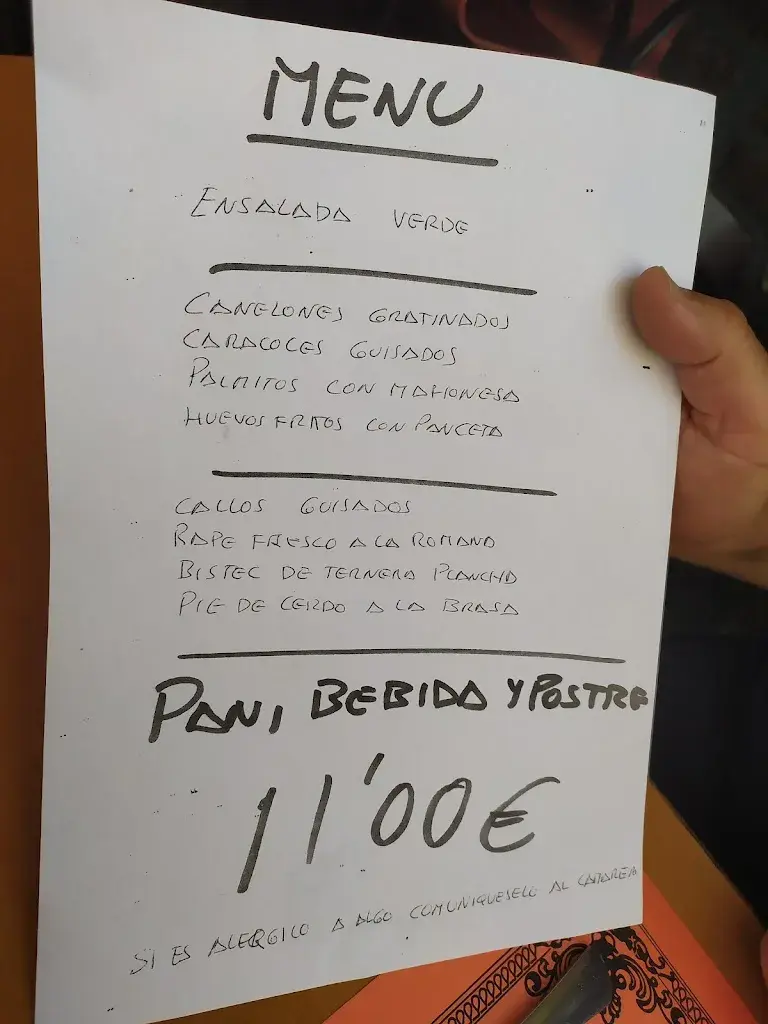 MENU
ENSALADA VERDE
CANELONES GRATINADOS
CARACOLES GUISADOS
PALMITOS CON MAHONESA
HUEVOS FRITOS CON PANCETA
CALLOS GUISADOS
RAPE FRESCO A LA ROMANA
BISTEC DE TERNERA PLANCHA
PIE DE CERDO A LA BRASA
PAN, BEBIDA Y POSTRE
11'00€
SI ES ALERGICO A ALGO COMUNIQUESELO AL